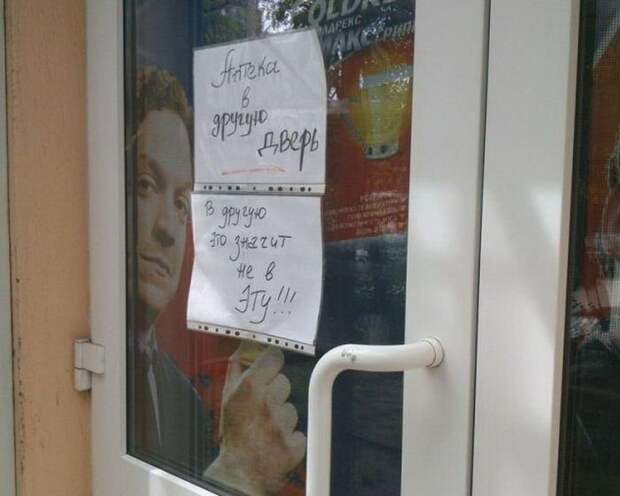 Аптека
в
другую
дверь
В другую
это значит
не в
эту!!!
OLDR
МАРЕКС
МАКС ГРИПП